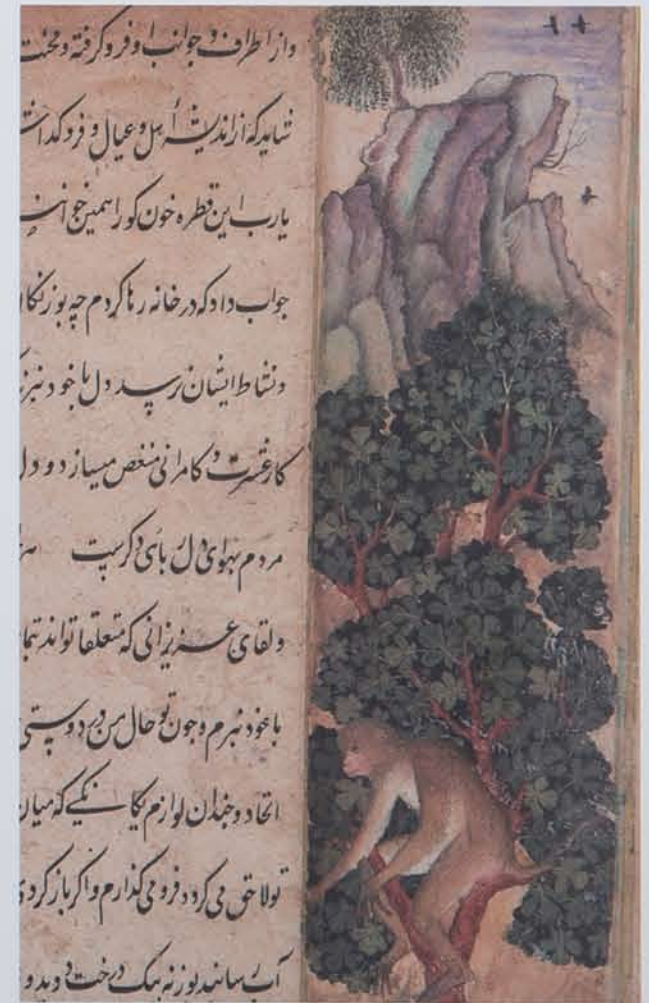 واز اطراف و جوانب او فرو گرفته و محنت
نشاید که از اندیشه أهل و عیال و فرو گذا
یارب این قطره خون کو را همین خو
جواب داد که در خانه رها کردم چه بوزنکا
و نشاط ایشان نرسد دل با خود نبرند
کار عشرت و کامرانی منغص میسازد و دل
مردم بهوای دل بای دکرست
و لقای عزیزانی که متعلقا تواند بتما
با خود نبرم و جون تو حال من در دوستی
اتحاد و جندان لوازم یکانکیی که میان
تولاحق می کردد فرو می کذارم و اکر باز کردی
آب رسانید بوزنه بیک درخت دوید و